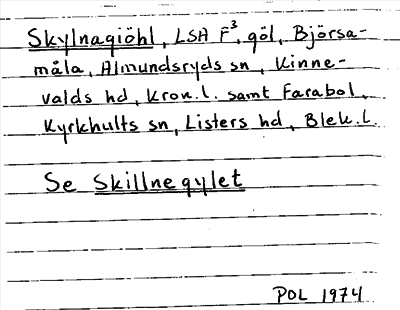 Skylnagiöhl, LSA F³, göl, Björsa-
måla, Almundsryds sn, Kinne-
valds hd, Kron.l. samt Farabol,
Kyrkhults sn, Listers hd, Blek.l.
Se Skillnegylet
POL 1974